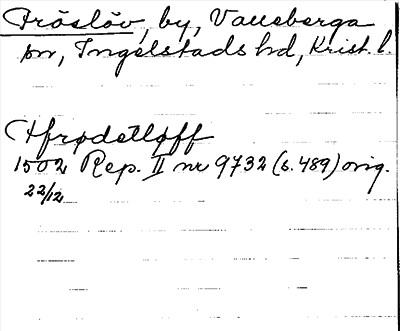 Fröslöv, by, Valleberga
sn, Ingelstads hd, Krist. l.
Hfrødetløff
1502 Rep. II nr 9732 (s. 489) orig.
22/12